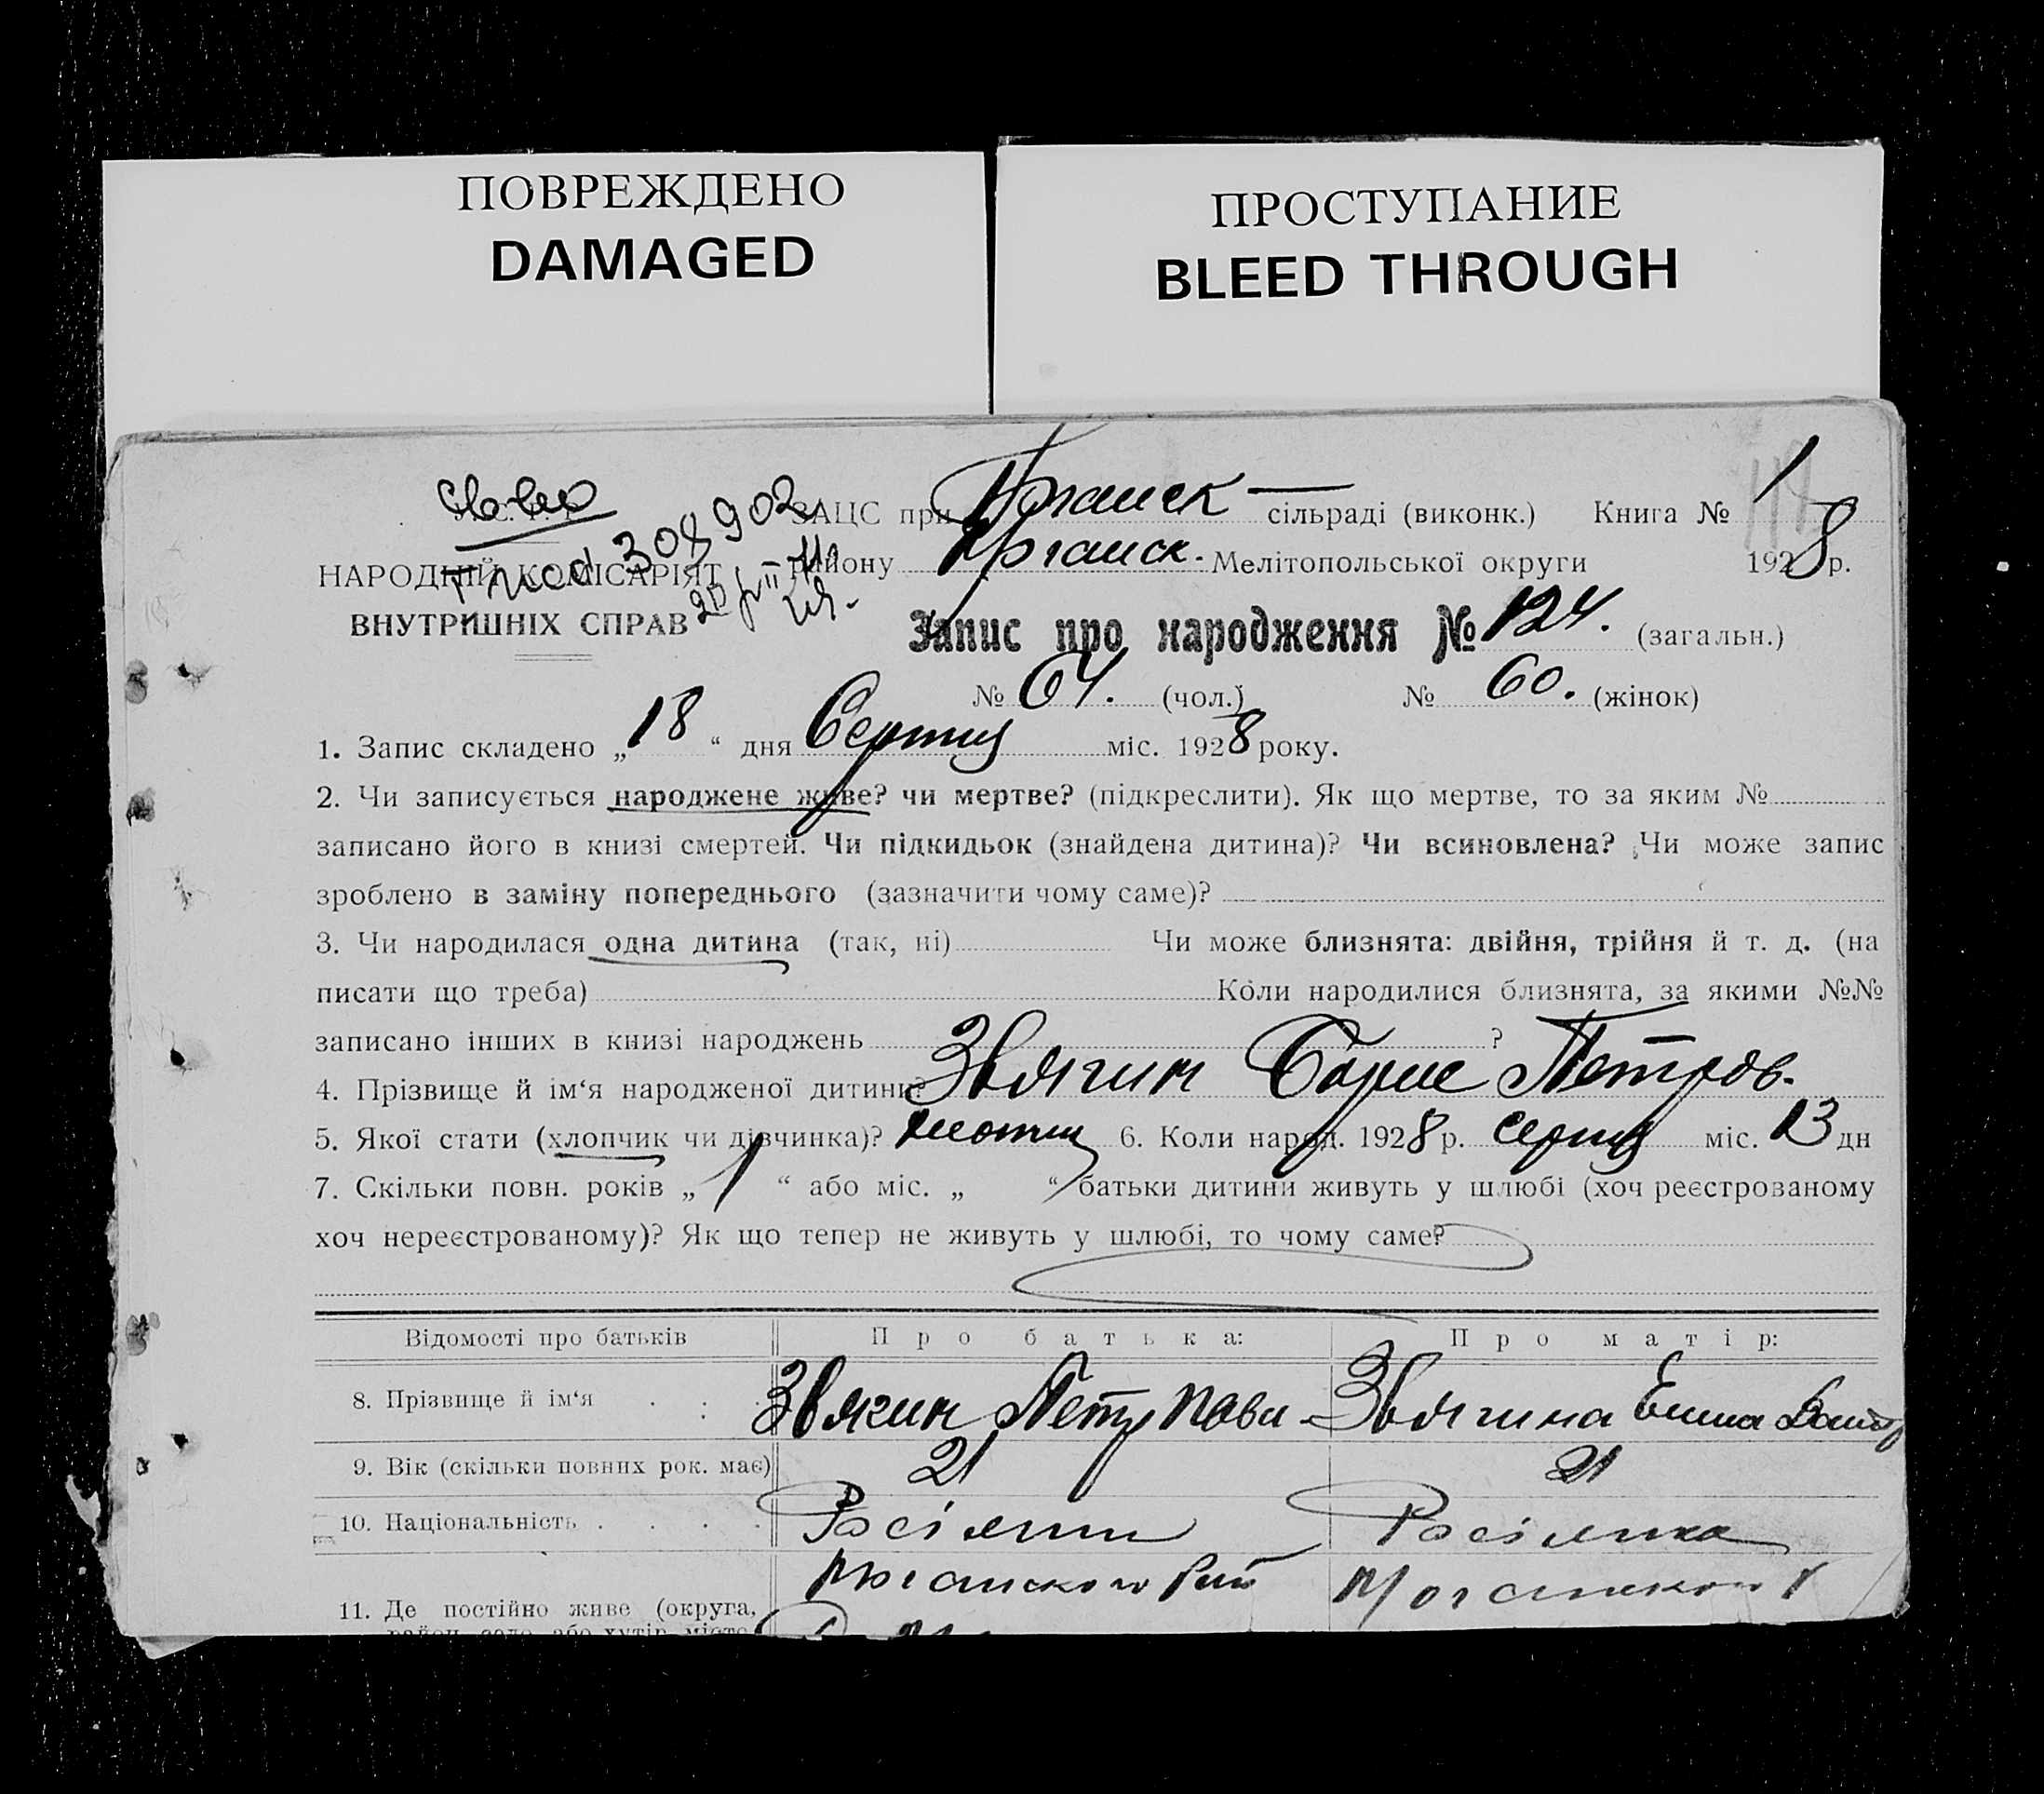 ПОВРЕЖДЕНО
DAMAGED
ПРОСТУПАНИЕ
BLEED THROUGH
ЗАЦС при сільраді (виконк.) Книга № 1
308902
НАРОДНІЙ КОМІСАРІЯТ
району Мелітопольської округи 1928 р.
ВНУТРІШНІХ СПРАВ
Запис про народження № 124. (загальн.)
№ 64. (чол.) № 60. (жінок)
1. Запис складено „18“ дня Серпня міс. 1928 року.
2. Чи записується народжене живе? чи мертве? (підкреслити). Як що мертве, то за яким №
записано його в книзі смертей. Чи підкидьок (знайдена дитина)? Чи всиновлена? Чи може запис
зроблено в заміну попереднього (зазначити чому саме)?
3. Чи народилася одна дитина (так, ні) Чи може близнята: двійня, трійня й т. д. (на
писати що треба) Коли народилися близнята, за якими №№
записано інших в книзі народжень ?
4. Прізвище й ім‘я народженої дитини? Звягин Борис Петров.
5. Якої стати (хлопчик чи дівчинка)? 6. Коли народ. 1928 р. серпня міс. 13 дн
7. Скільки повн. років „1“ або міс. „ “ батьки дитини живуть у шлюбі (хоч реєстрованому
хоч нереєстрованому)? Як що тепер не живуть у шлюбі, то чому саме?
Відомості про батьків Про батька: Про матір:
8. Прізвище й ім‘я Звягин Петр Звягина
9. Вік (скільки повних рок. має) 21 21
10. Національність Росіянин Росіянка
11. Де постійно живе (округа,
район, село або хутір, місто